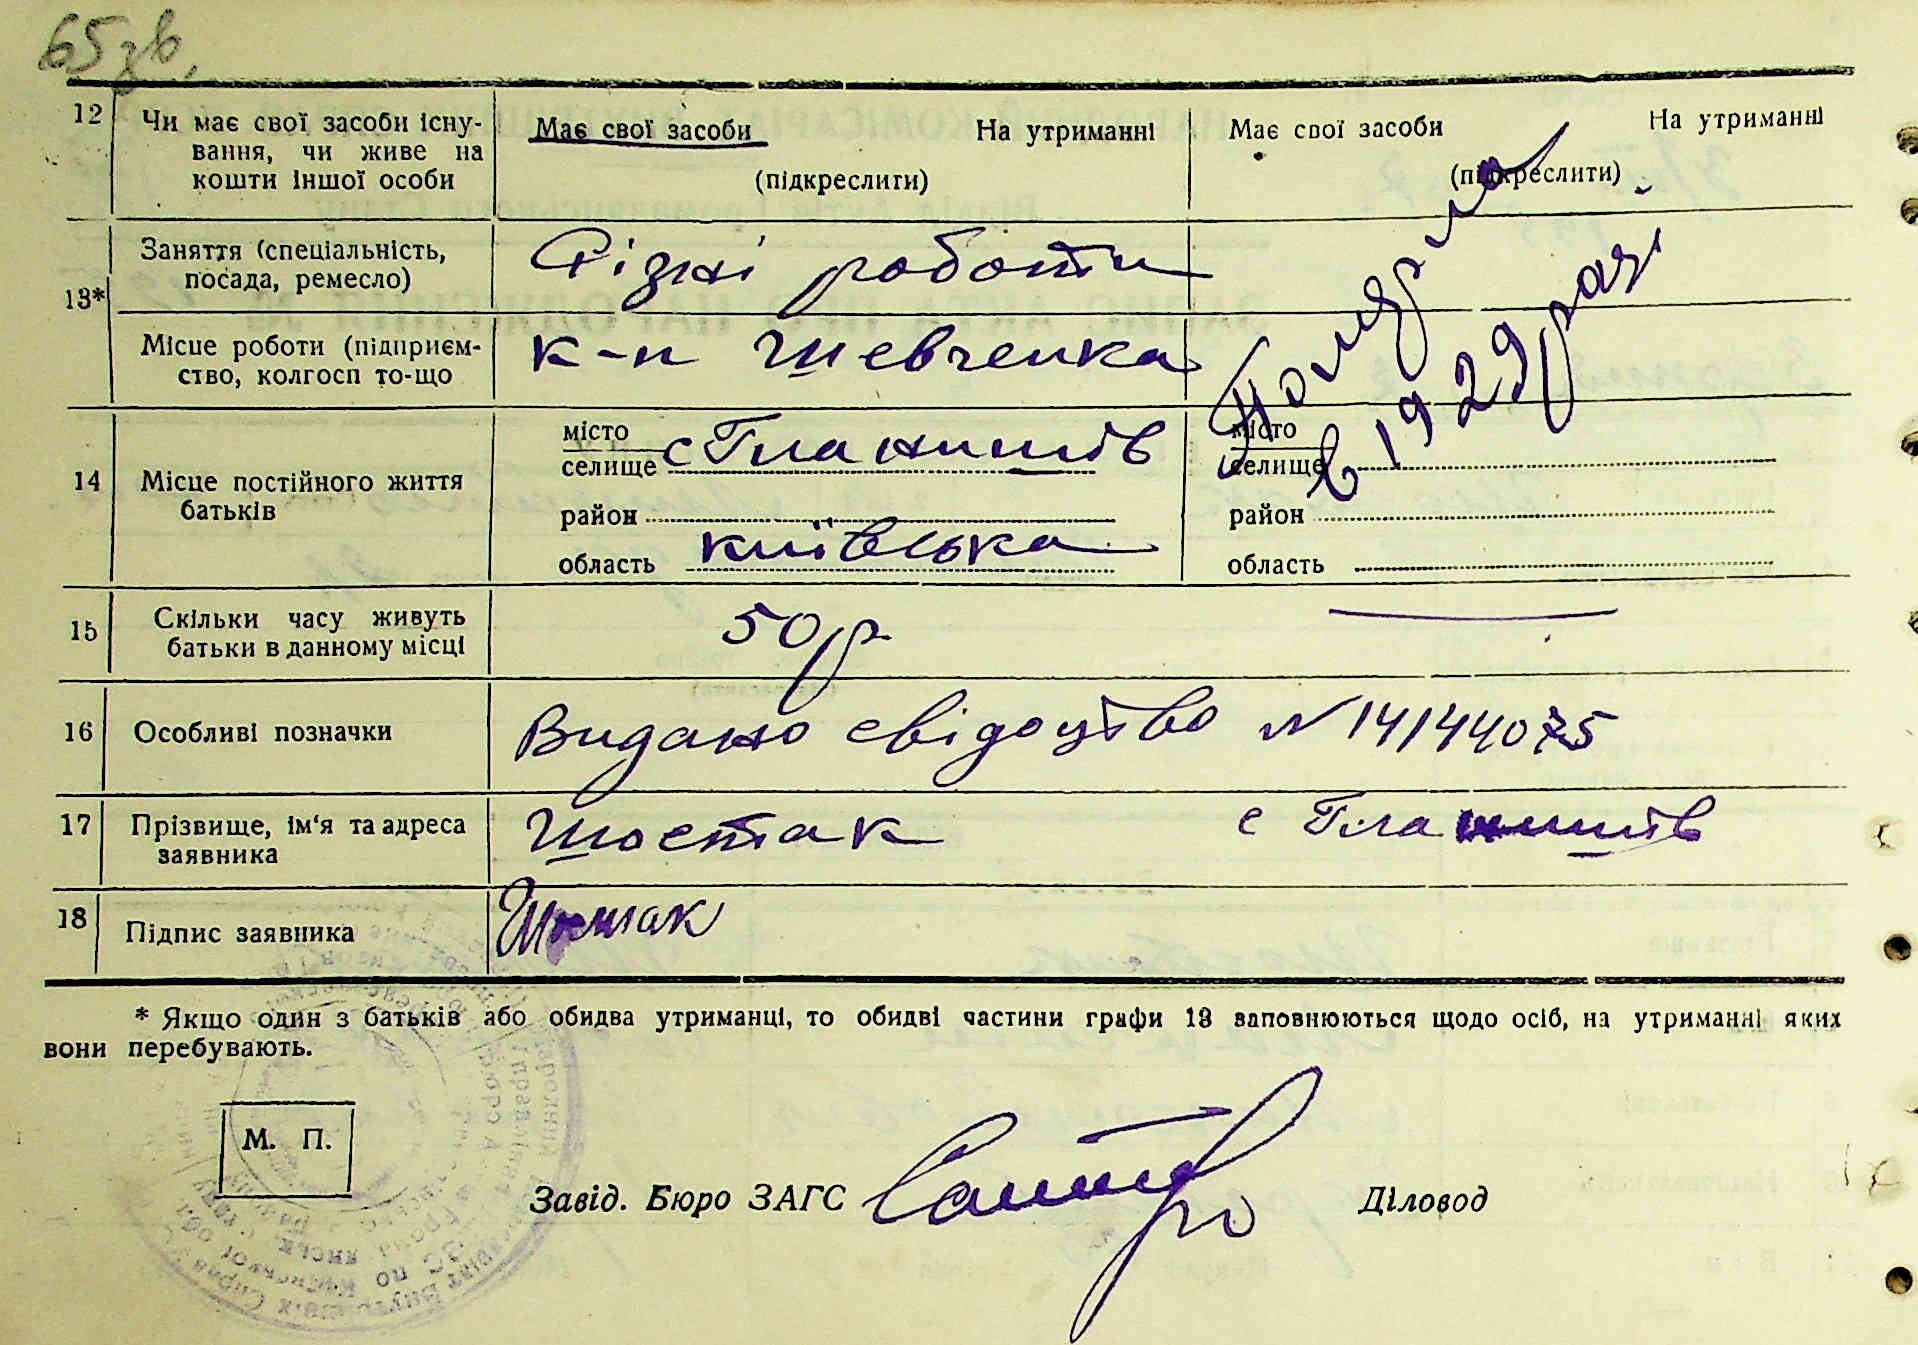 65 зв.
12 Чи має свої засоби існу-
вання, чи живе на
кошти іншої особи
Має свої засоби На утриманні
(підкреслити)
Має свої засоби На утриманні
(підкреслити)
13* Заняття (спеціальність,
посада, ремесло)
Різні роботи
Місце роботи (підприєм-
ство, колгосп то-що
к-п Шевченка
Померла
в 1929 році
14 Місце постійного життя
батьків
місто
селище с Планишів
район
область київська
місто
селище
район
область
15 Скільки часу живуть
батьки в данному місці
50 р
16 Особливі позначки
Видано свідоцтво N 14144075
17 Прізвище, ім'я та адреса
заявника
Шостак с Планишів
18 Підпис заявника
Шостак
* Якщо один з батьків або обидва утриманці, то обидві частини графи 13 заповнюються щодо осіб, на утриманні яких
вони перебувають.
М. П.
Завід. Бюро ЗАГС
Діловод